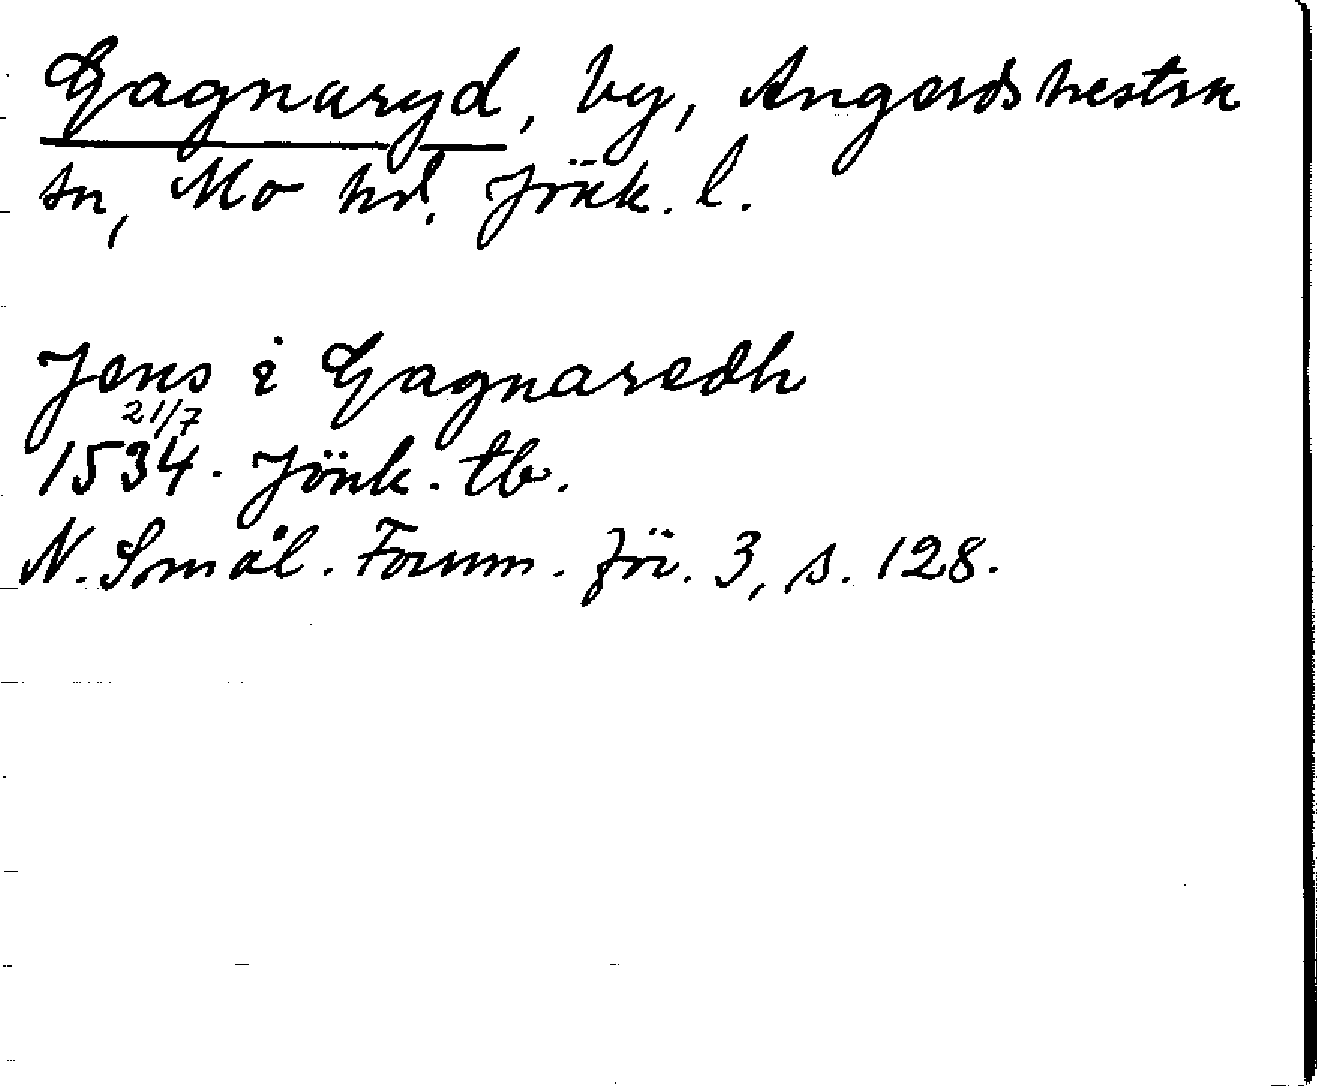 Gagnaryd, by, Angerdshestra
sn, Mo hd. Jönk. l.
Jens i Gagnaredh
21/7
1534. Jönk. tb.
N. Smål. Fornm.för. 3, s. 128.